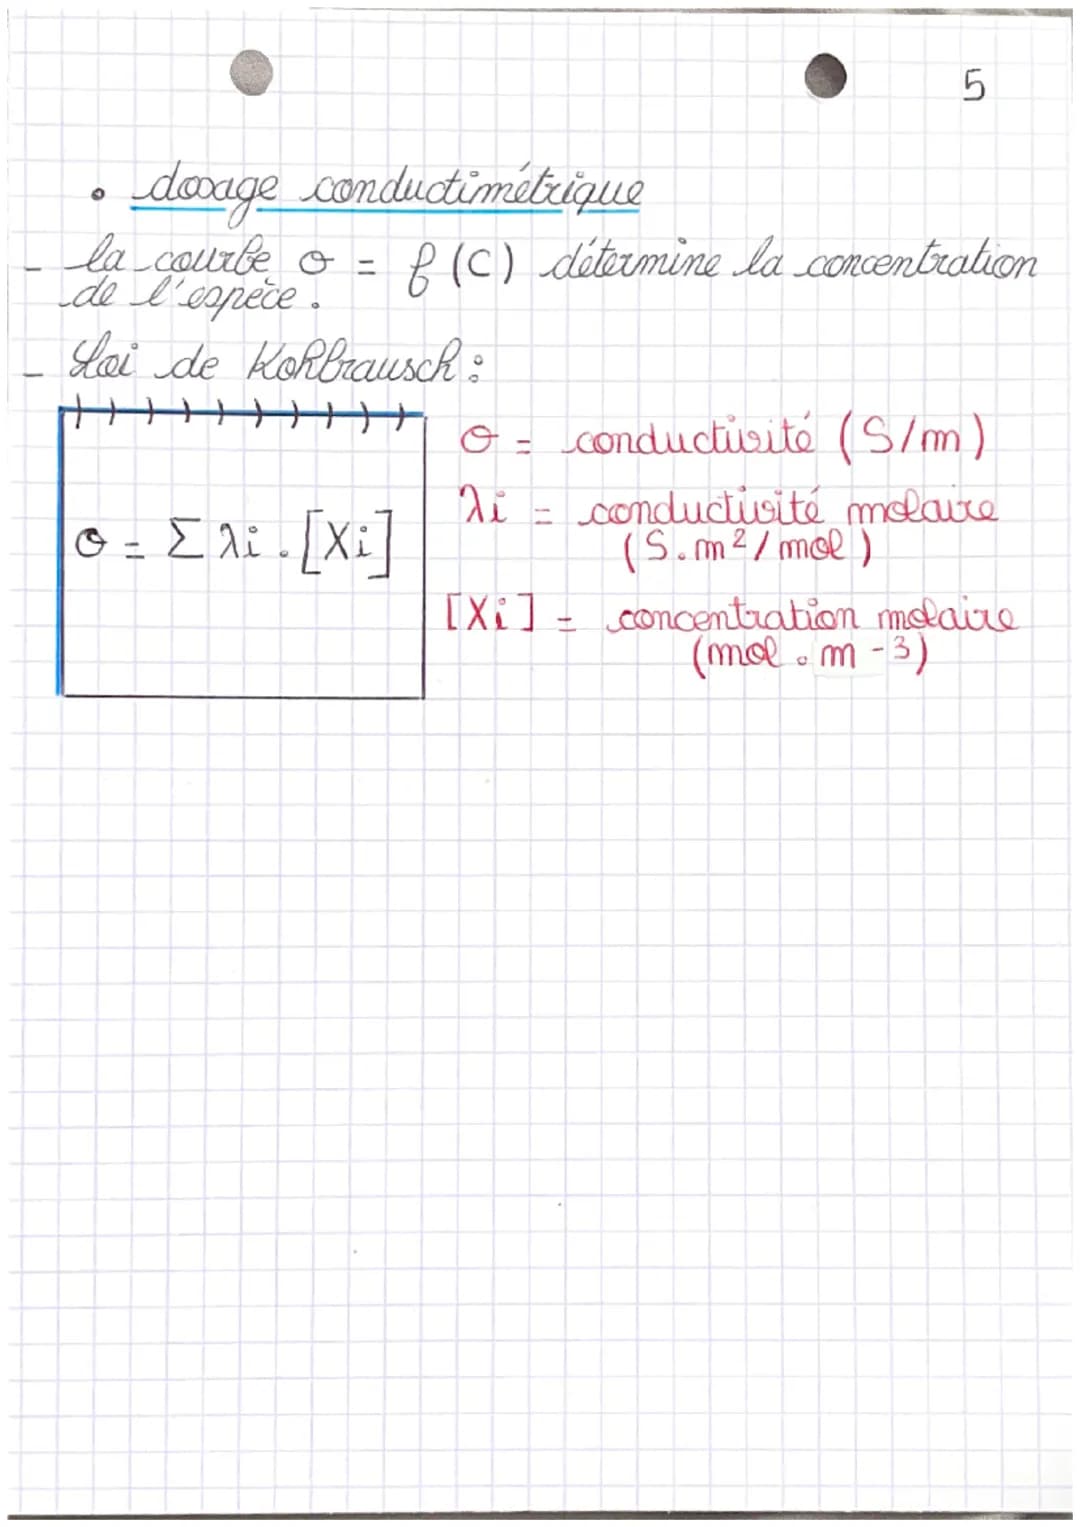 5
• dosage conductimétrique
- la courbe σ = f(C) détermine la concentration
de l'espèce.
- Loi de Kohlrausch :
σ = conductivité (S/m)
λi = conductivité molaire
(S.m²/mol)
σ = Σ λi . [Xi]
[Xi] = concentration molaire
(mol . m -3)